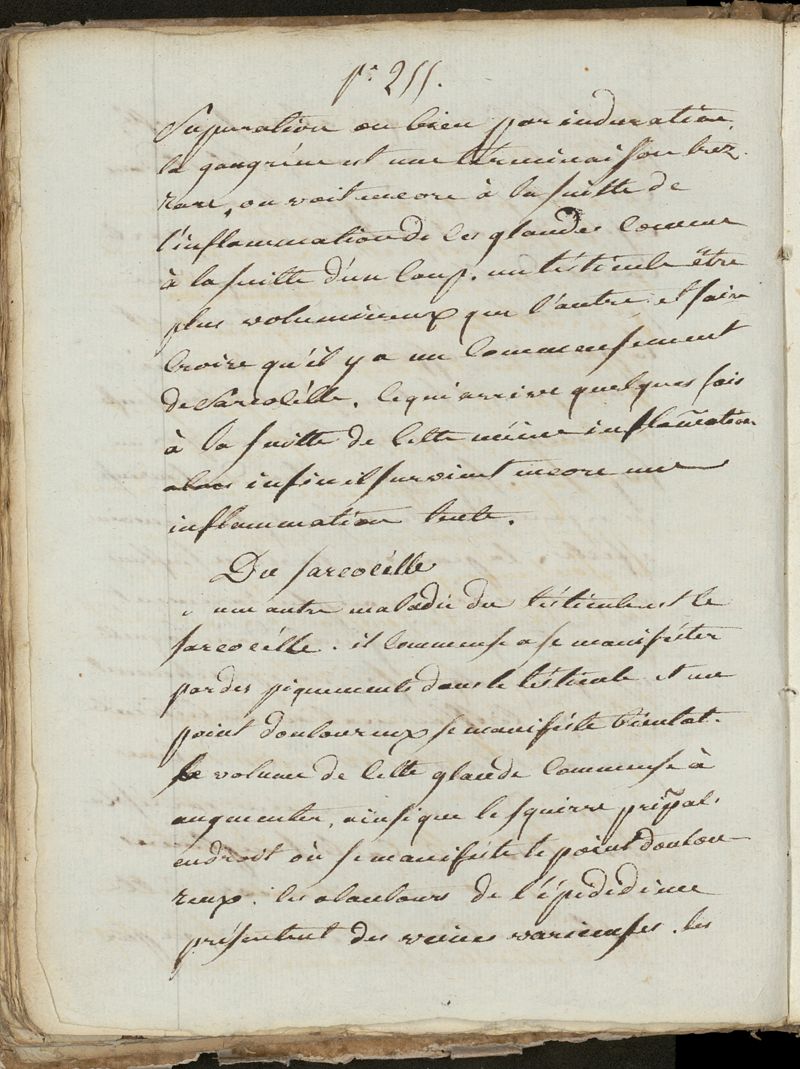 pe. 255.
Supuration ou bien par induration,
la gangrène est une terminaison trèz
rare, on voit encore à la suitte de
l'inflammation de ces glandes comme
à la suitte d'un coup, un tésticule être
plus volumineux que l'autre et faire
croire qu'il y a un commensement
de Sarcocélle, ce qui arrive quelques fois
à la suitte de cette même inflam̃ation
infin il survient encore une
inflammation lente.
Du sarcocélle
une autre maladie du tésticule est le
sarcocélle. il commense a se manifester
par des piquements dans le tésticule et un
point douloureux se manifeste bientot.
le volume de cette glande commense à
augmenter, ainsi que le squirre prip̃al,
endroit où se manifeste le point doulou-
reux. les alentours de l'épididime
présentent des veines variceuses. les